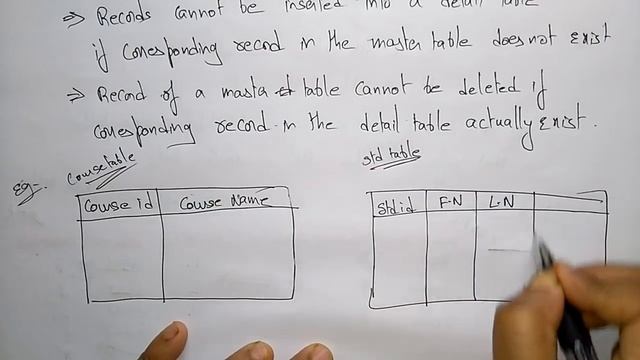 ⇒ Records cannot be inserted into a detail table
if corresponding record in the master table does not exist
⇒ Record of a master table cannot be deleted if
corresponding record in the detail table actually exist.
Eg:- Course table
Std table
Course Id Course Name
Std id F.N L.N